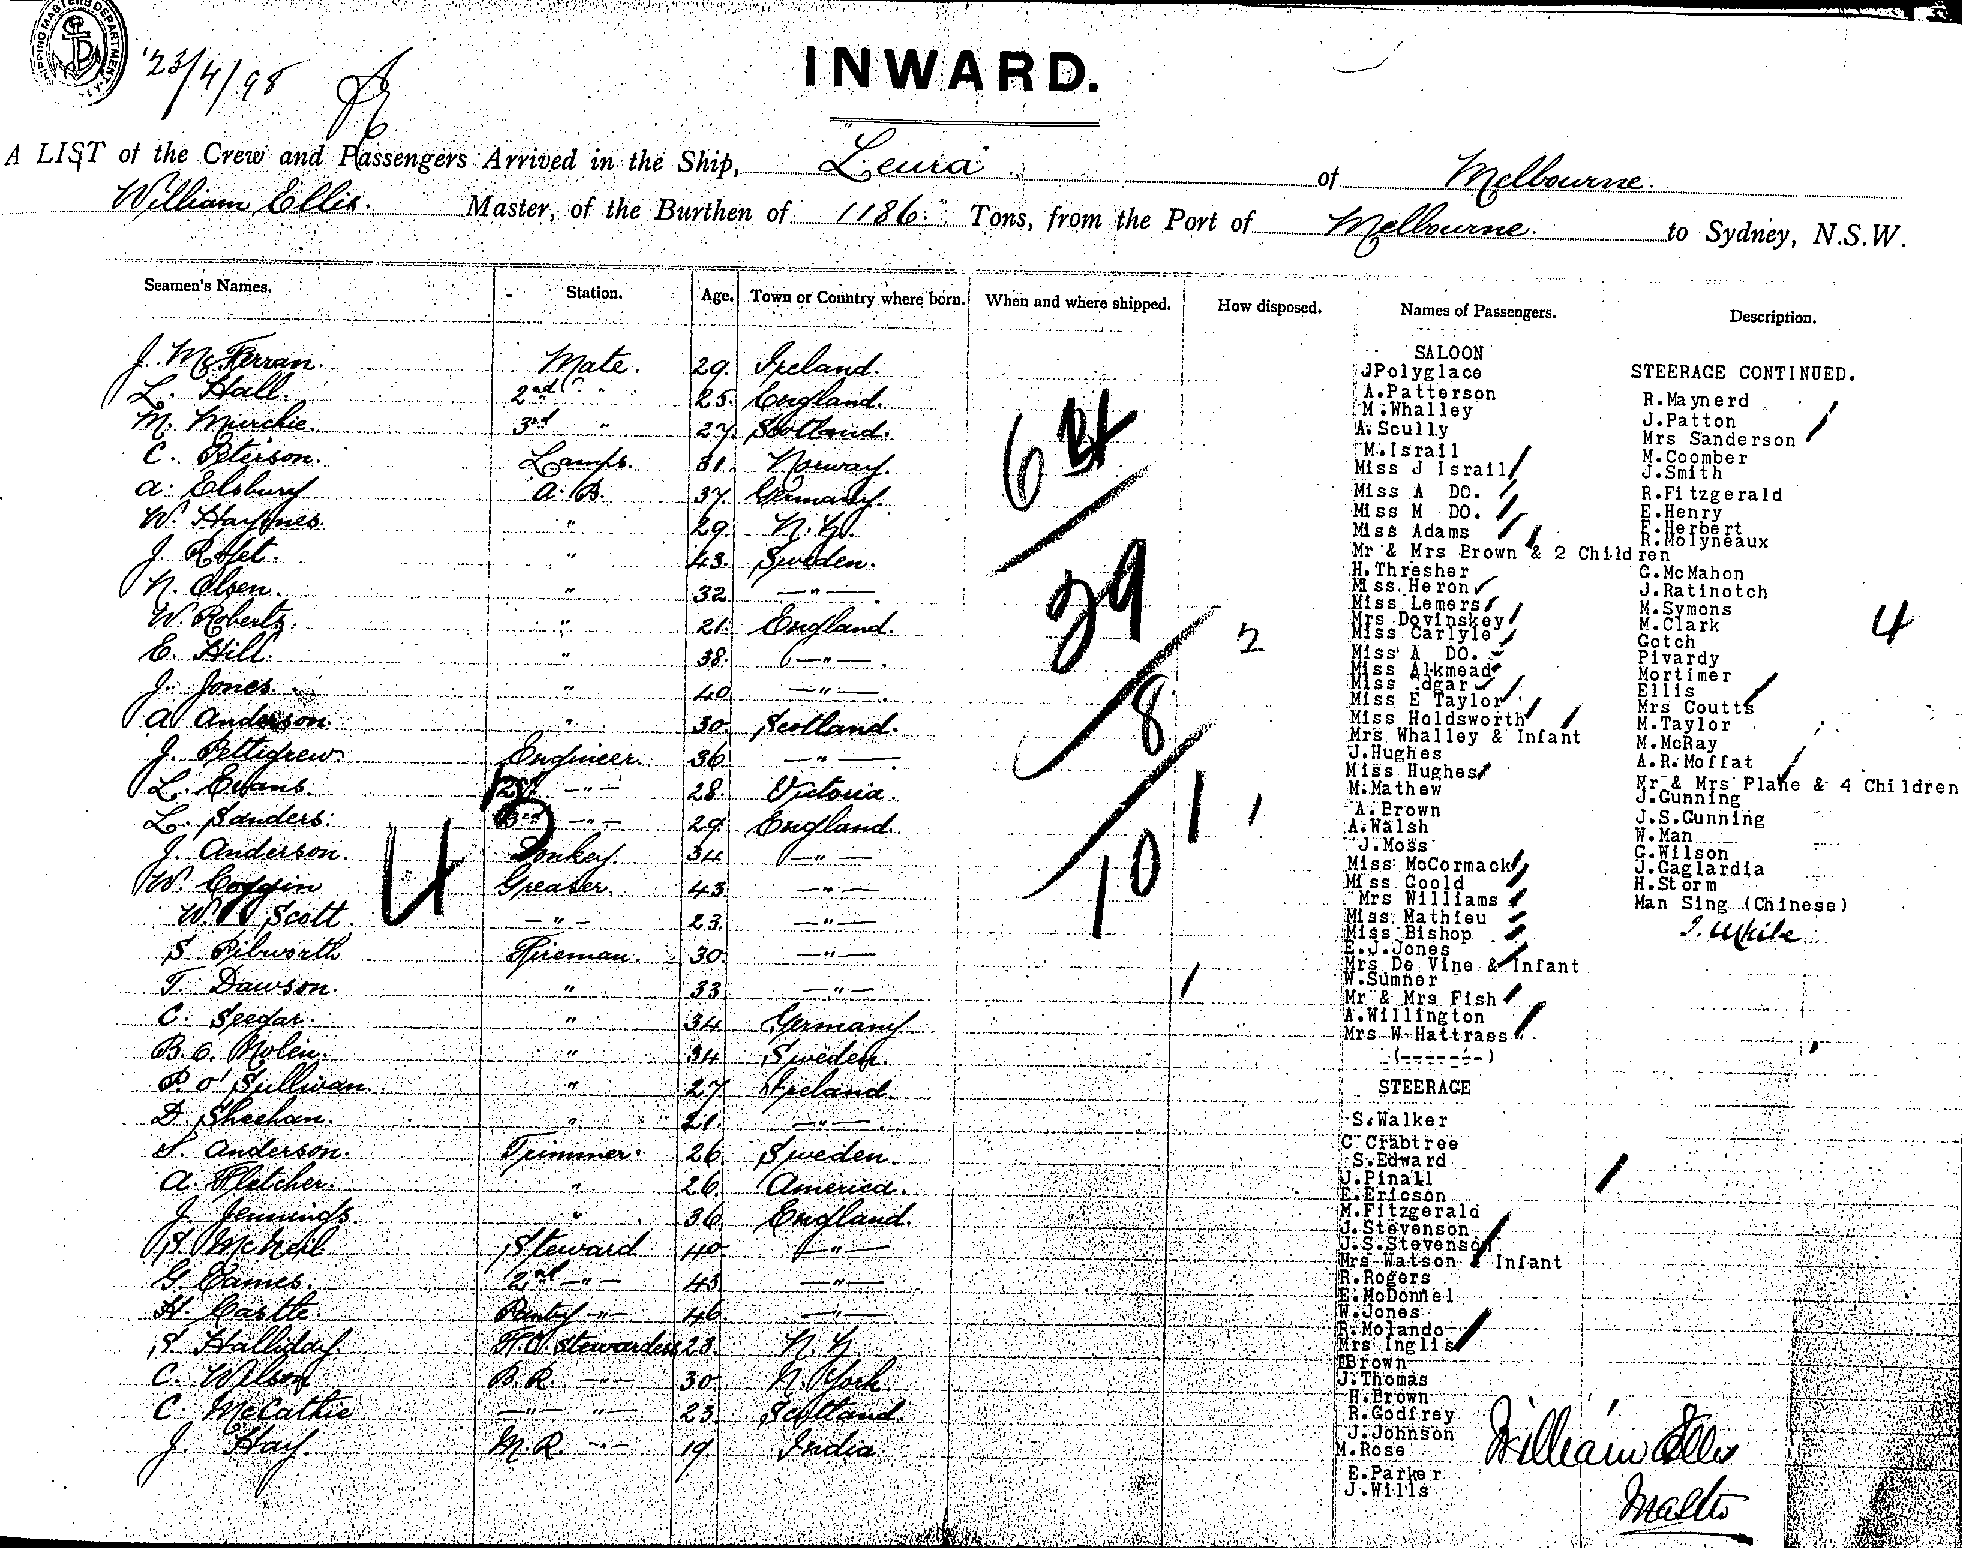 SHIPPING MASTERS DEPARTMENT
23/4/98
INWARD.
A LIST of the Crew and Passengers Arrived in the Ship, "Leura" of Melbourne.
William Ellis. Master, of the Burthen of 1186. Tons, from the Port of Melbourne. to Sydney, N.S.W.
Seamen's Names. Station. Age. Town or Country where born. When and where shipped. How disposed. Names of Passengers. Description.
J. McFerran. Mate. 29. Ireland.
L. Hall. 2nd " 25. England.
M. Murchie. 3rd " 27. Scotland.
C. Peterson. Lamps. 31. Norway.
A. Elsbury A.B. 37. Germany.
W. Haynes " 29.
J. " 43. Sweden.
N. Olsen. " 32. — " —
W. Roberts. " 21. England.
E. Hill. " 38. — " —
J. Jones. " 40. — " —
A. Anderson. " 30. Scotland.
J. Pettigrew. Engineer. 36. — " —
L. Evans. 2nd — " — 28. Victoria.
L. Sanders. 3rd — " — 29. England.
J. Anderson. Donkey. 34. — " —
W. Coggin Greaser. 43. — " —
W. Scott — " — 23. — " —
S. Pilworth Fireman. 30. — " —
T. Dawson. " 33. — " —
C. Seegar. " 34. Germany
B.C. Nolen. " 34. Sweden.
P. O'Sullivan. " 27. Ireland.
D. Sheehan. " 21. — " —
S. Anderson. Trimmer. 26. Sweden.
A. Fletcher. " 26. America.
J. Jennings. " 36. England.
S. McNeil Steward 40. — " —
G. Eames. 2nd — " — 43. — " —
H. Castle. Pantry — " — 46. — " —
S. Halliday. Stewardess 28.
C. Wilson B.R. — " — 30. N. York
C. McCathie — " — " — 23. Scotland.
J. Hay. M.R. — " — 19. India.
6
29
8
10
1
2
4
4
SALOON
J Polyglace
A.Patterson
M.Whalley
A.Scully
M.Israil
Miss J Israil
Miss A DO.
Miss M DO.
Miss Adams
Mr & Mrs Brown & 2 Children
H.Thresher
Miss Heron
Miss Lemers
Mrs Dovinskey
Miss Carlyle
Miss A DO.
Miss Alkmead
Miss Edgar
Miss E Taylor
Miss Holdsworth
Mrs Whalley & Infant
J.Hughes
Miss Hughes
M.Mathew
A.Brown
A.Walsh
J.Moss
Miss McCormack
Miss Goold
Mrs Williams
Miss Mathieu
Miss Bishop
E.J.Jones
Mrs De Vine & Infant
W.Sumner
Mr & Mrs Fish
A.Willington
Mrs W Hattrass
(------)
STEERAGE
S.Walker
C Crabtree
S.Edward
J.Pinall
E.Ericson
M.Fitzgerald
J.Stevenson
J.S.Stevenson
Mrs Watson & Infant
R.Rogers
E.McDonnel
W.Jones
R.Molando
Mrs Inglis
Brown
J.Thomas
H.Brown
R.Godfrey
J.Johnson
M.Rose
E.Parker
J.Wills
STEERAGE CONTINUED.
R.Maynerd
J.Patton
Mrs Sanderson
M.Coomber
J.Smith
R.Fitzgerald
E.Henry
F.Herbert
R.Molyneaux
G.McMahon
J.Ratinotch
M.Symons
M.Clark
Gotch
Pivardy
Mortimer
Ellis
Mrs Coutts
M.Taylor
M.McRay
A.R.Moffat
Mr & Mrs Plane & 4 Children
J.Gunning
J.S.Gunning
W.Man
G.Wilson
J.Gaglardia
H.Storm
Man Sing (Chinese)
J. White
William Ellis
Master